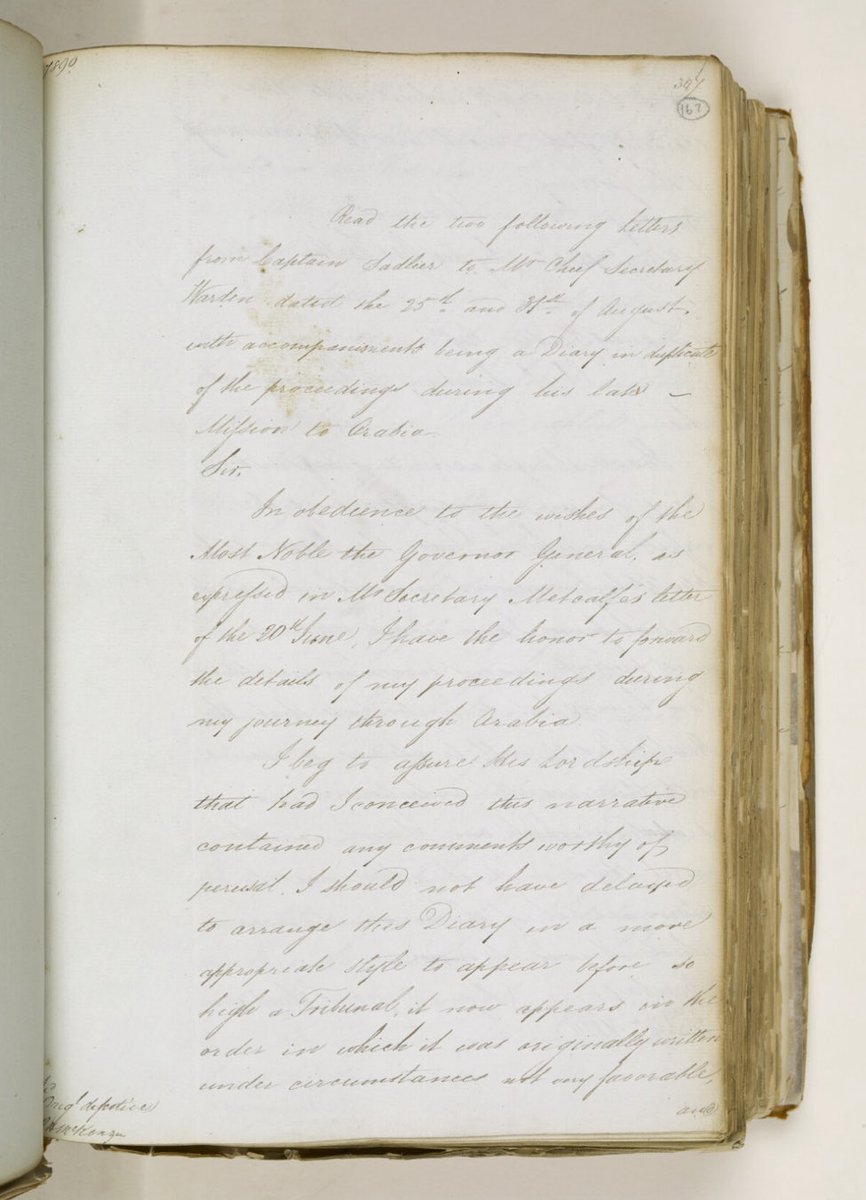 7890
327
167
Read the two following letters
from Captain Sadlier to Mr Chief Secretary
Warden dated the 25th and 31st of August,
with accompaniments being a Diary in duplicate
of the proceedings during his late -
Mission to Arabia
Sir,
In obedience to the wishes of the
Most Noble the Governor General, as
expressed in Mr Secretary Metcalfe's letter
of the 20th June, I have the honor to forward
the details of my proceedings during
my journey through Arabia
I beg to assure His Lordship
that had I conceived this narrative
contained any comments worthy of
perusal, I should not have delayed
to arrange this Diary in a more
appropriate style to appear before so
high a Tribunal, it now appears in the
order in which it was originally written
under circumstances not very favorable,
and
Orig.l defective
McKenzie